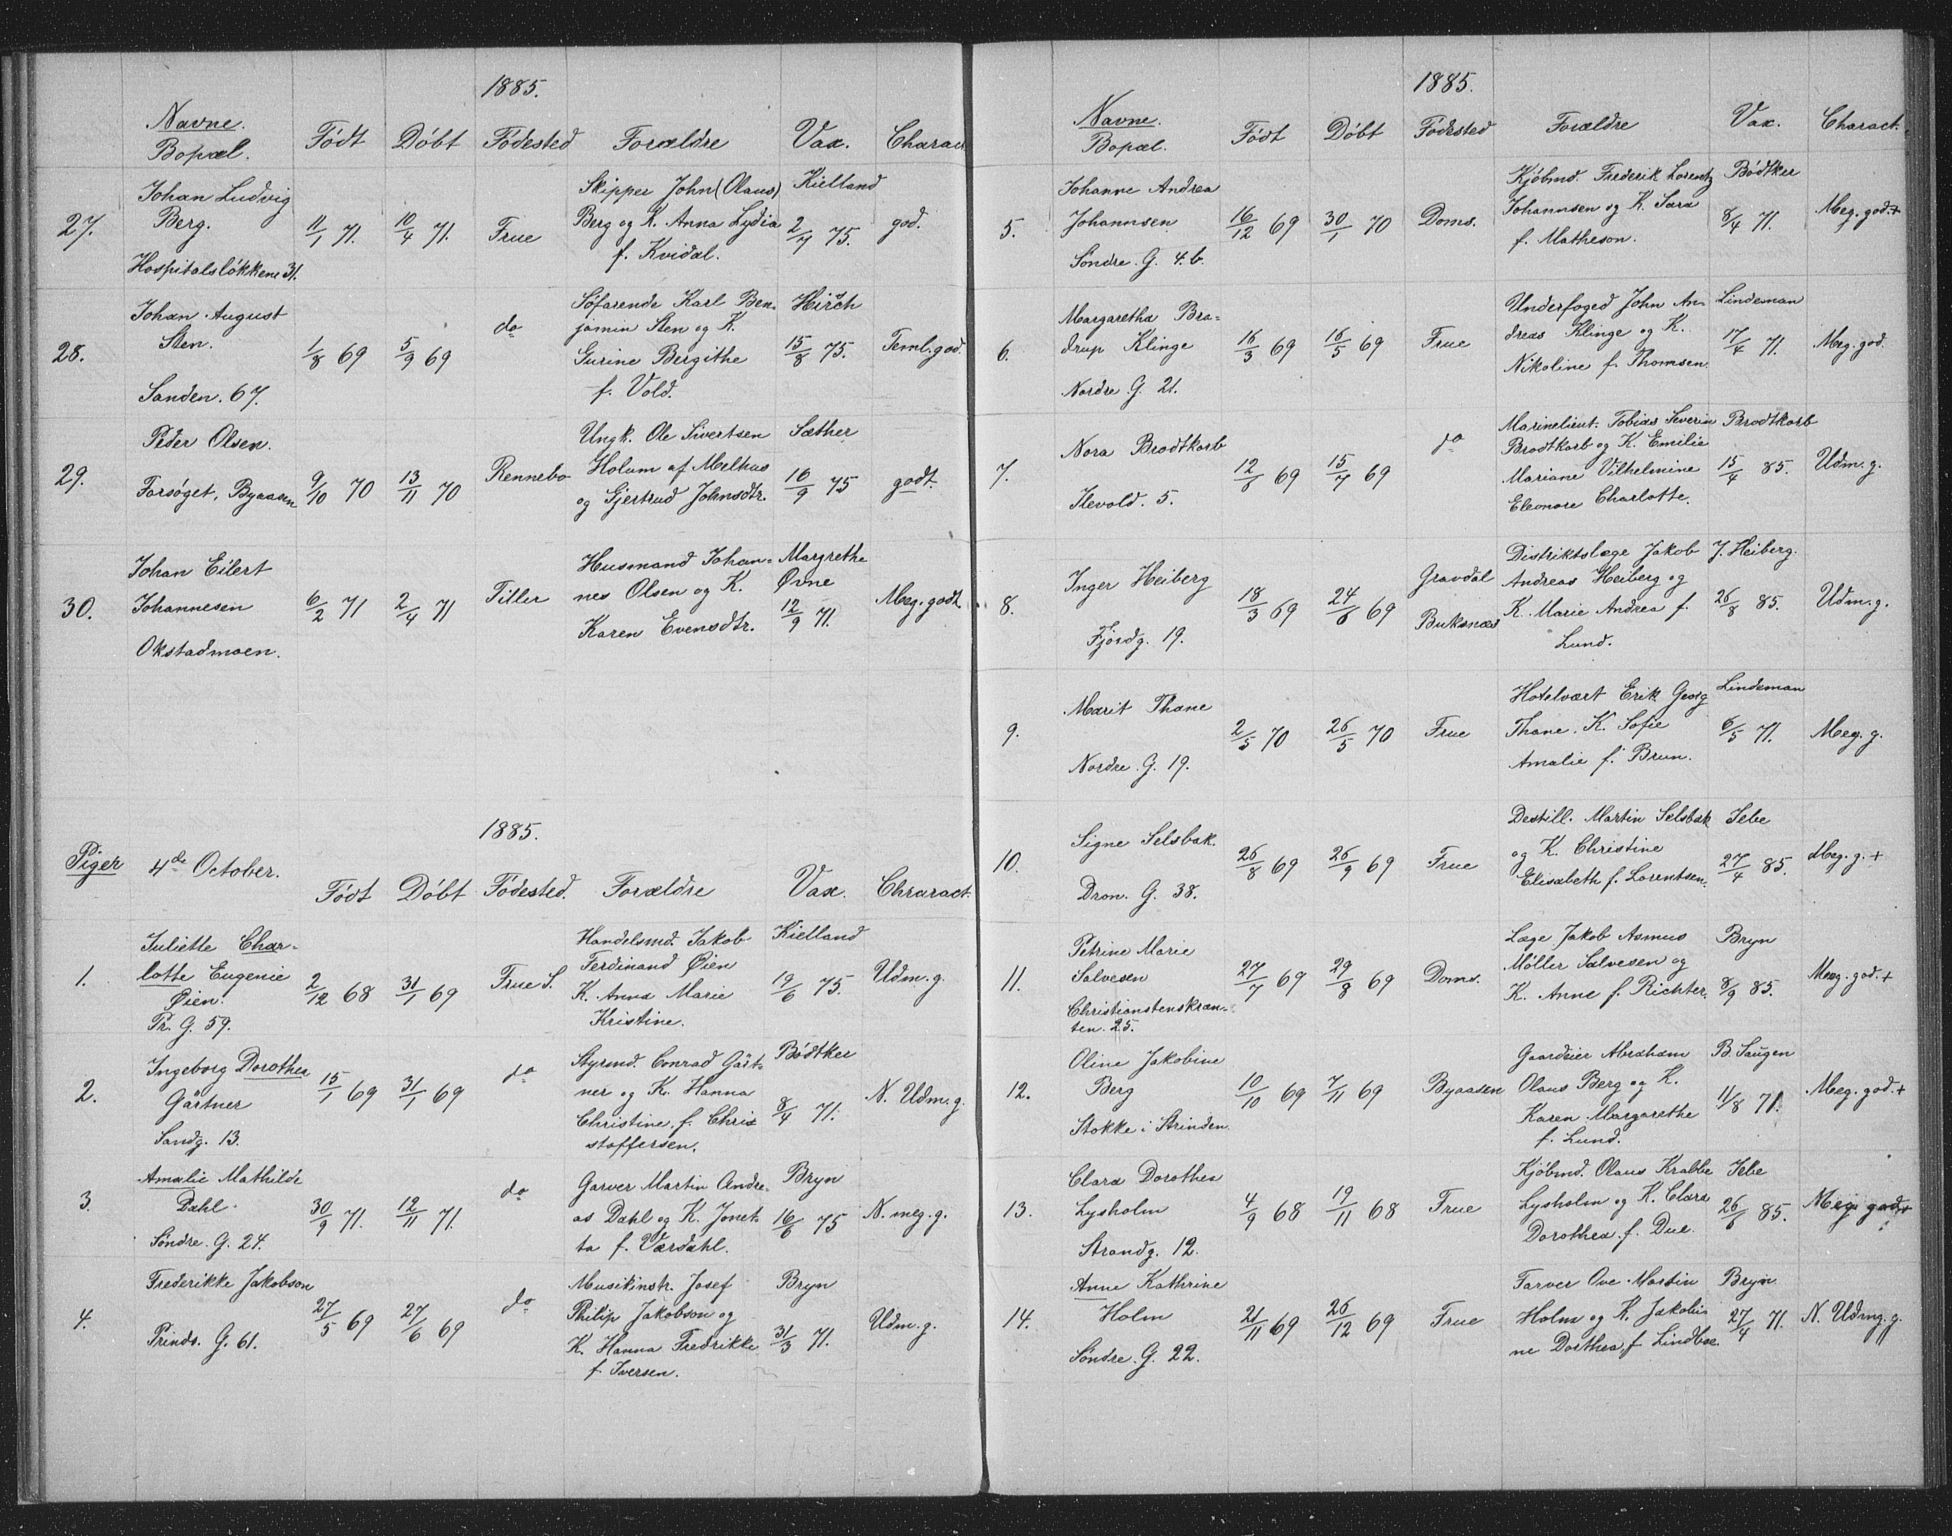 1885.
Navne. Bopæl. Födt Döbt Födested Forældre Vax. Charact.
27. Johan Ludvig Berg. Hospitalsløkkene 31. 11/1 71. 10/4 71. Frue Skipper John (Olaus) Berg og K. Anna Lydia f. Kvidal. Kielland 2/7 75. god.
28. Johan August Sten. Sanden. 67. 1/8 69 5/9 69 do Søfarende Karl Benjamin Sten og K. Gurine Bergithe f. Vold. Hirsch 15/8 75. Teml. god.
29. Peder Olsen. Forsøget, Byaasen 9/10 70 13/11 70 Rennebo Ungk. Ole Sivertsen Holum af Melhus og Gjertrud Johnsdtr. Sæther 16/9 75 godt.
30. Johan Eilert Johannesen Okstadmoen. 6/2 71 2/4 71 Tiller Husmand Johannes Olsen og K. Karen Evensdtr. Margrethe Øvne 12/9 71. Meg. godt.
1885.
Piger 4de October. Födt Döbt Födested. Forældre Vax. Chraract.
1. Juliette Charlotte Eugenie Øien. Pr. G. 59. 2/12 68 31/1 69 Frue S. Handelsmd. Jakob Ferdinand Øien K. Anna Marie Kristine. Kielland 19/6 75. Udm. g.
2. Ingeborg Dorothea Gärtner Sandg. 13. 15/1 69 31/1 69 do Styrmd. Conrad Gärtner og K. Hanna Christine f. Christoffersen. Bödtker 8/4 71. N. Udm. g.
3. Amalie Mathilde Dahl. Söndre. G. 24. 30/9 71. 12/11 71. do Garver Martin Andreas Dahl og K. Jonetta f. Værdahl. Bryn 16/6 75 N. meg. g.
4. Frederikke Jakobson Prinds. G. 61. 27/5 69 27/6 69 do Musikinstr. Josef Philip Jakobson og K. Hanna Fredrikke f. Iversen. Bryn 31/3 71. Udm. g.
1885.
Navne. Bopæl. Födt Döbt Födested Forældre Vax. Charact.
5. Johanne Andrea Johannsen Söndre. G. 4.b. 16/12 69 30/1 70 Doms. Kjöbmd. Frederik Lorentz Johannsen og K. Sara f. Matheson. Bödtker 8/4 71. Meg. god. +
6. Margaretha Bradrup Klinge Nordre G. 21. 16/3 69 16/5 69 Frue Underfoged John Andreas Klinge og K. Nikoline f. Thomsen. Lindeman 17/4 71. Meg. god.
7. Nora Brodtkorb Ilevold. 5. 12/6 69 15/7 69 do Marinelieut. Tobias Severin Brodtkorb og K. Emilie Mariane Vilhelmine Eleonore Charlotte. Brodtkorb 15/4 85. Udm. g.
8. Inger Heiberg Fjordg. 19. 18/3 69 24/6 69 Gravdal Buksnæs Distriktslæge Jakob Andreas Heiberg og K. Marie Andrea f. Lund. J. Heiberg. 26/8 85. Udm. g.
9. Marit Thane Nordre. G. 19. 2/5 70 26/5 70 Frue Hotelvært Erik Georg Thane. K. Sofie Amalie f. Brun. Lindeman 6/5 71. Meg. g.
10. Signe Selsbak. Dron. G. 38. 26/8 69 26/9 69 Frue Destill. Martin Selsbak og K. Christine Elisabeth f. Lorentsen. Sebe 27/4 85. Meg. g. +
11. Petrine Marie Salvesen Christianstenskrænten. 25. 27/7 69 29/8 69 Doms. Læge Jakob Asmus Möller Salvesen og K. Anne f. Richter. Bryn 8/9 85. Meg. god. +
12. Oline Jakobine Berg Stokke i Strinden. 10/10 69 7/11 69 Byaasen Gaardeier Abraham Olaus Berg og K. Karen Margarethe f. Lund. B. Saugen 11/8 71. Meg. god. +
13. Clara Dorothea Lysholm Strandg. 12. 4/9 68 19/11 68 Frue Kjöbmd. Olaus Krabbe Lysholm og K. Clara Dorothea f. Due. Sebe 26/6 85. Meg. god. +
14. Anne Kathrine Holm Söndre. G. 22. 21/11 69 26/12 69 Frue Farver Ove Martin Holm og K. Jakobine Dorthea f Lindboe. Bryn 27/4 71. N. Udm. g.